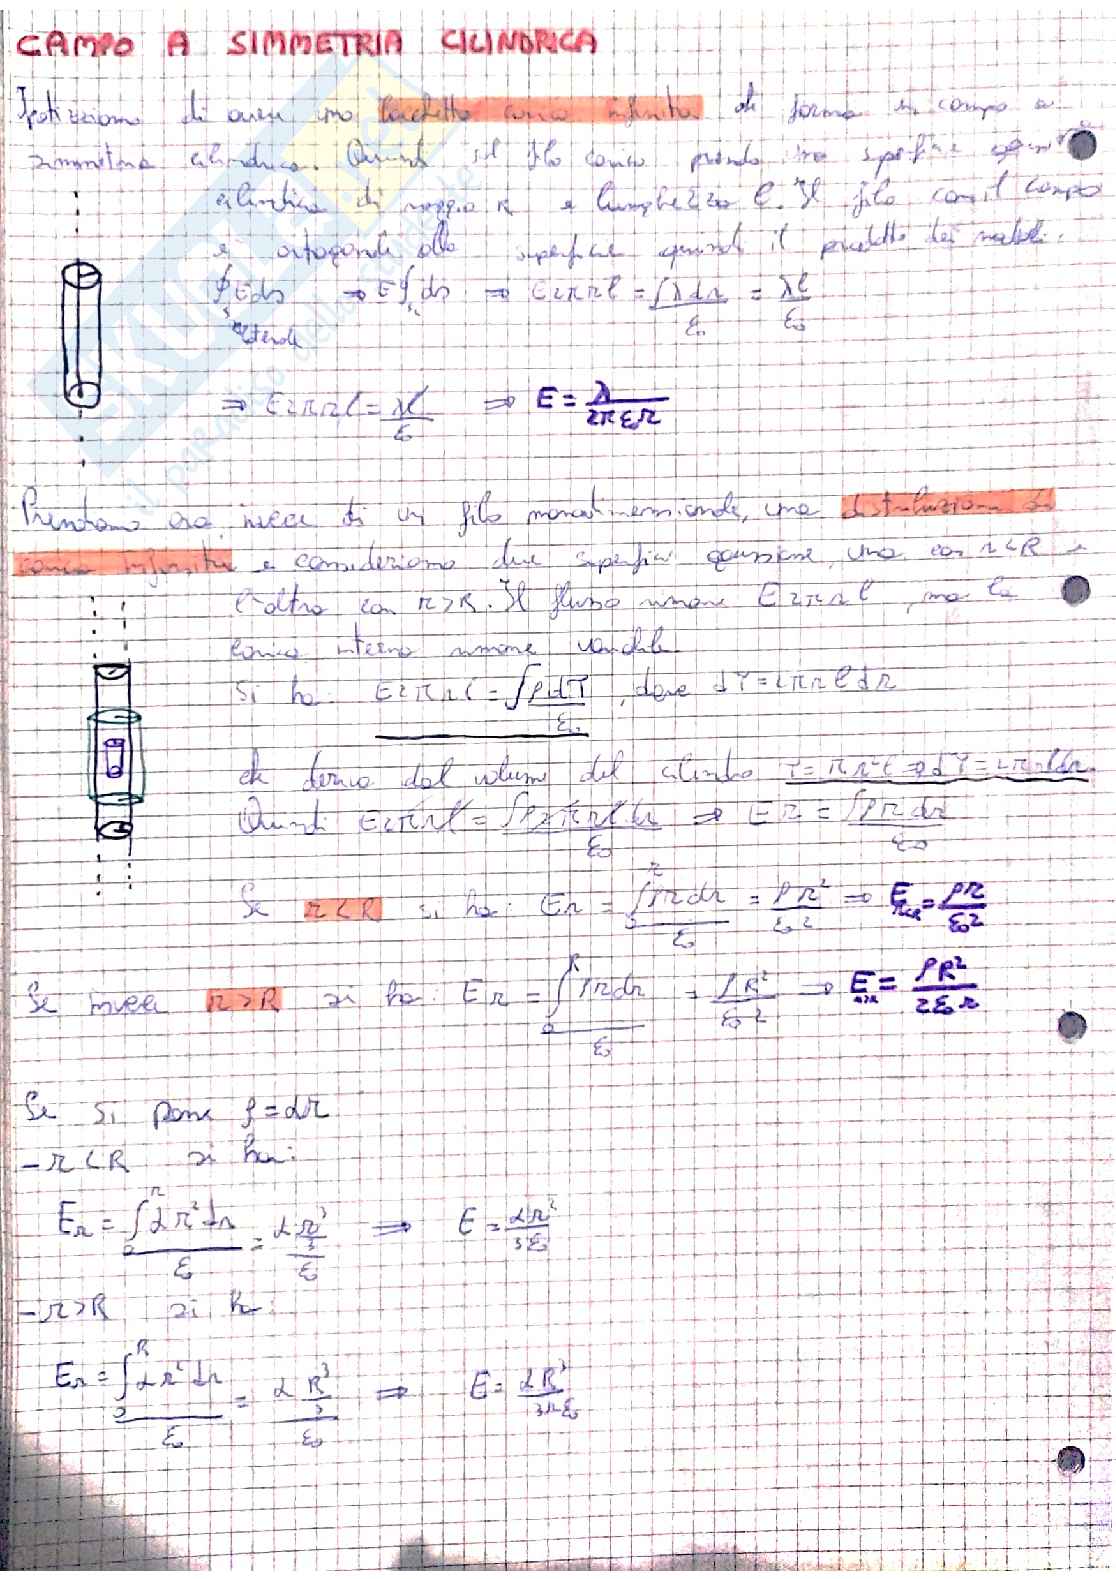 CAMPO A SIMMETRIA CILINDRICA
Ipotizziamo di avere una bacchetta carica infinita di forma un campo a
simmetria cilindrica. Quindi il filo carico prendo una superficie
cilindrica di raggio r e lunghezza l. Il filo con il campo
e ortogonale alla superficie quindi il prodotto dei moduli.
∮E ds ⇒ E∮ds ⇒ E2πrl = ∫λdr/ε₀ = λl/ε₀
⇒ E2πrl = λl/ε₀ ⇒ E = λ/2πε₀r
Prendiamo ora invece di un filo monodimensionale, una distribuzione di
carica infinita e consideriamo due superfici gaussiane, una con r<R e
l'altra con r>R. Il flusso rimane E2πrl, ma la
carica interna rimane variabile.
Si ha: E2πrl = ∫ρdτ/ε₀, dove dτ=2πrldr
che deriva dal volume del cilindro τ=πr²l ⇒ dτ=2πrldr
Quindi E2πrl = ∫ρ2πrldr/ε₀ ⇒ Er = ∫ρrdr/ε₀
Se r<R si ha: Er = ∫₀ʳρrdr/ε₀ = ρr²/ε₀2 ⇒ E r<R = ρr/ε₀2
Se invece r>R si ha: Er = ∫₀ᴿρrdr/ε₀ = ρR²/ε₀2 ⇒ E r>R = ρR²/2ε₀r
Se si pone ρ=αr
-r<R si ha:
Er = ∫₀ʳαr²dr/ε₀ = α r³/3/ε₀ ⇒ E = αr²/3ε₀
-r>R si ha:
Er = ∫₀ᴿαr²dr/ε₀ = α R³/3/ε₀ ⇒ E = αR³/3rε₀